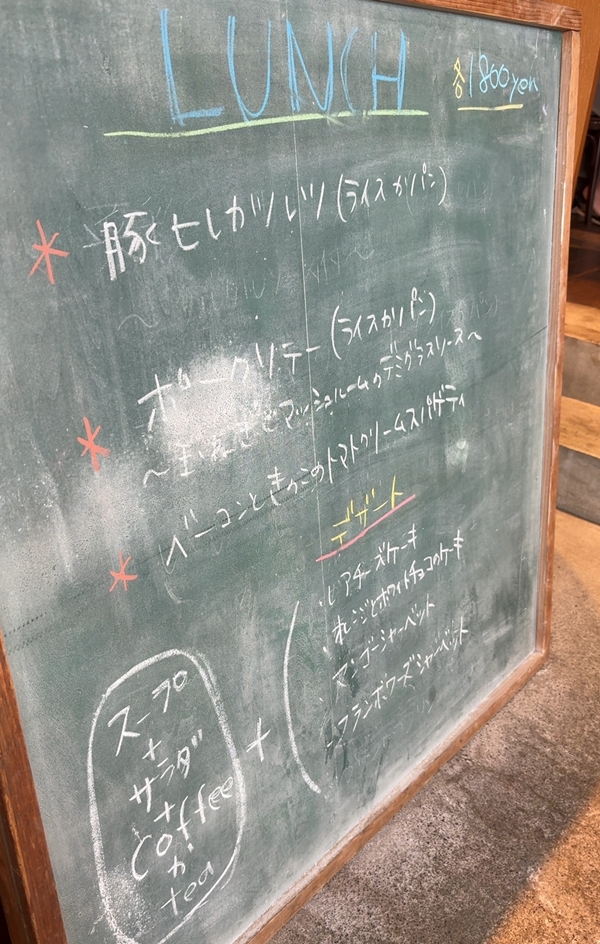 LUNCH
各1800yen
* 豚ヒレカツレツ (ライスかパン)
* ポークソテー (ライスかパン)
～玉ねぎとマッシュルームのデミグラスソース～
* ベーコンときのこのトマトクリームスパゲティ
デザート
・レアチーズケーキ
・オレンジとホワイトチョコのケーキ
・マンゴーシャーベット
・フランボワーズシャーベット
スープ
+
サラダ
+
Coffee
か
tea
+